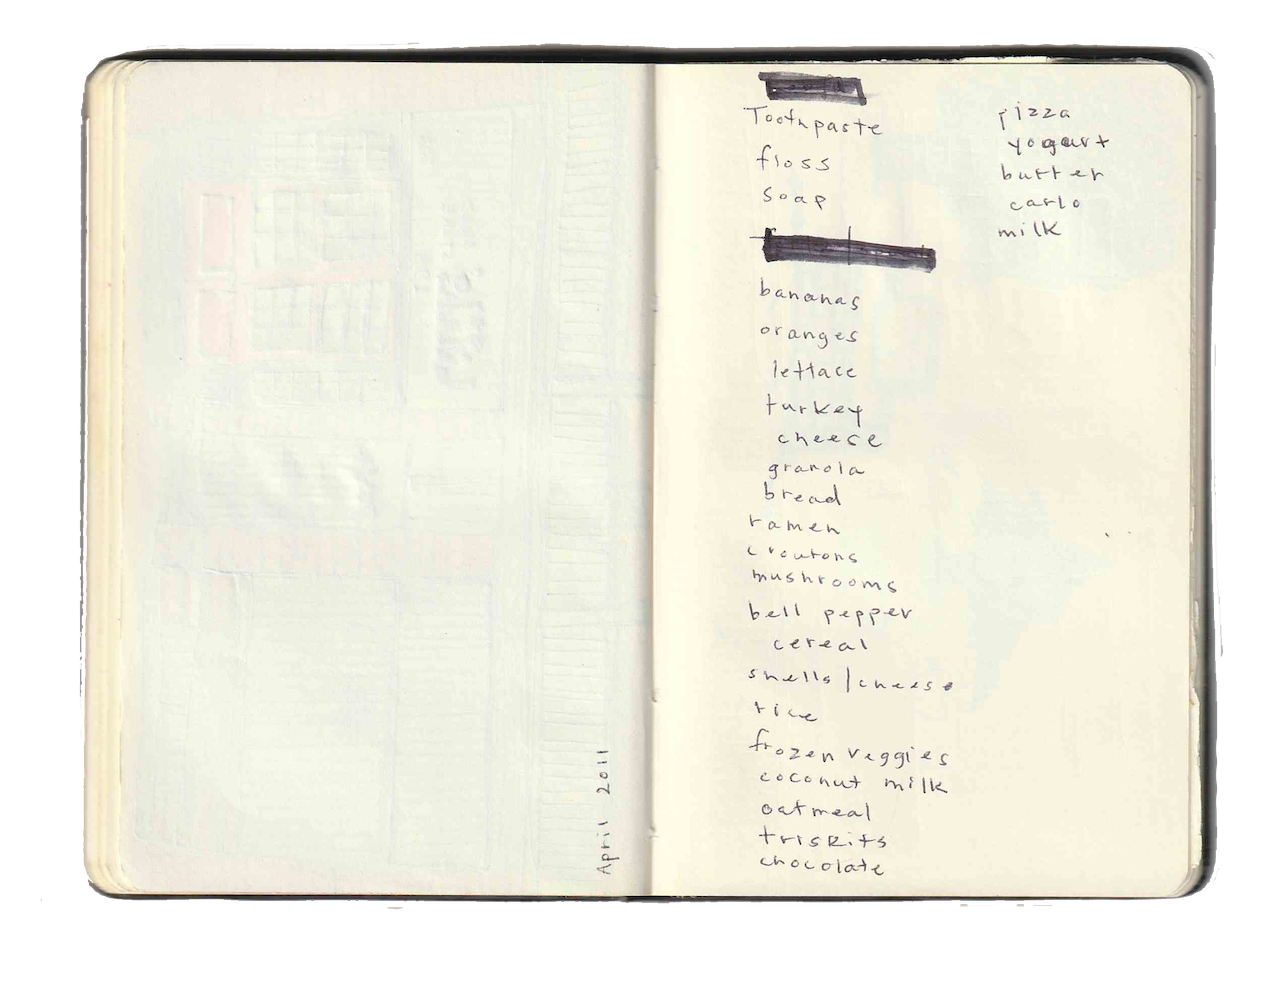 April 2011
Toothpaste
floss
soap
bananas
oranges
lettace
turkey
cheese
granola
bread
ramen
croutons
mushrooms
bell pepper
cereal
shells/cheese
rice
frozen veggies
coconut milk
oatmeal
triskits
chocolate
pizza
yogurt
butter
carlo
milk